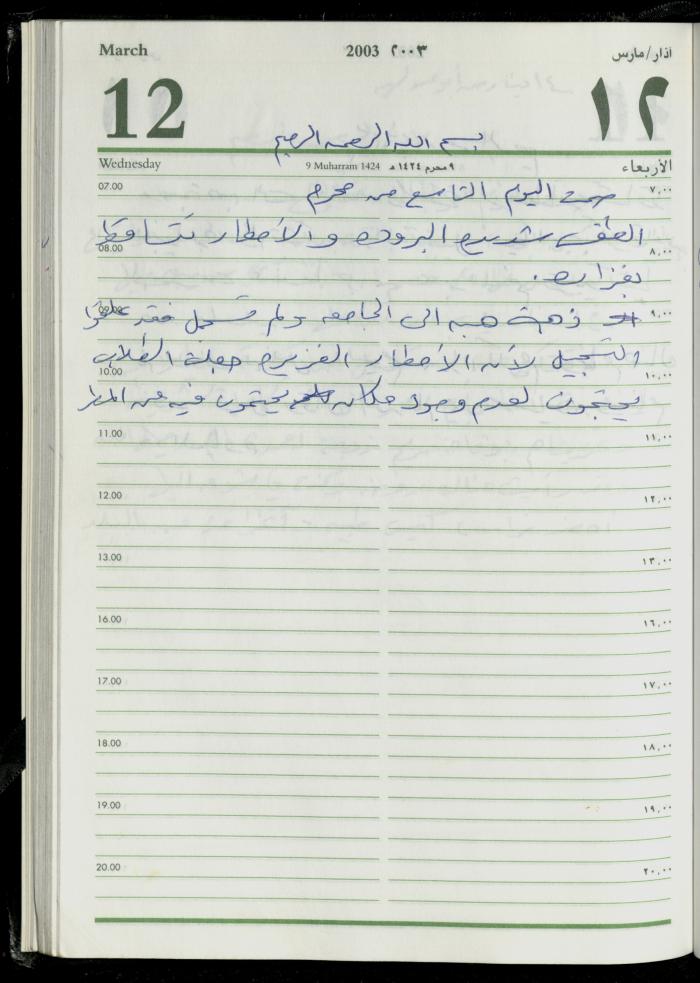 March 2003 ٢٠٠٣ آذار/مارس
12 ١٢
بسم الله الرحمن الرحيم
Wednesday 9 Muharram 1424 ٩ محرم ١٤٢٤ هـ الأربعاء
07.00 صمت اليوم التاسع من محرم ٧,٠٠
الطقس شديد البروده والأمطار تتساقط
08.00 ٨,٠٠
بغزاره .
09.00 ذهبت هبه الى الجامعه ولم تسجل فقد علقوا ٩,٠٠
التسجيل لأن الأمطار الغزيره جعلت الطلاب
10.00 ١٠,٠٠
يحتجون لعدم وجود مكان يحتمون فيه من المطر
11.00 ١١,٠٠
12.00 ١٢,٠٠
13.00 ١٣,٠٠
16.00 ١٦,٠٠
17.00 ١٧,٠٠
18.00 ١٨,٠٠
19.00 ١٩,٠٠
20.00 ٢٠,٠٠